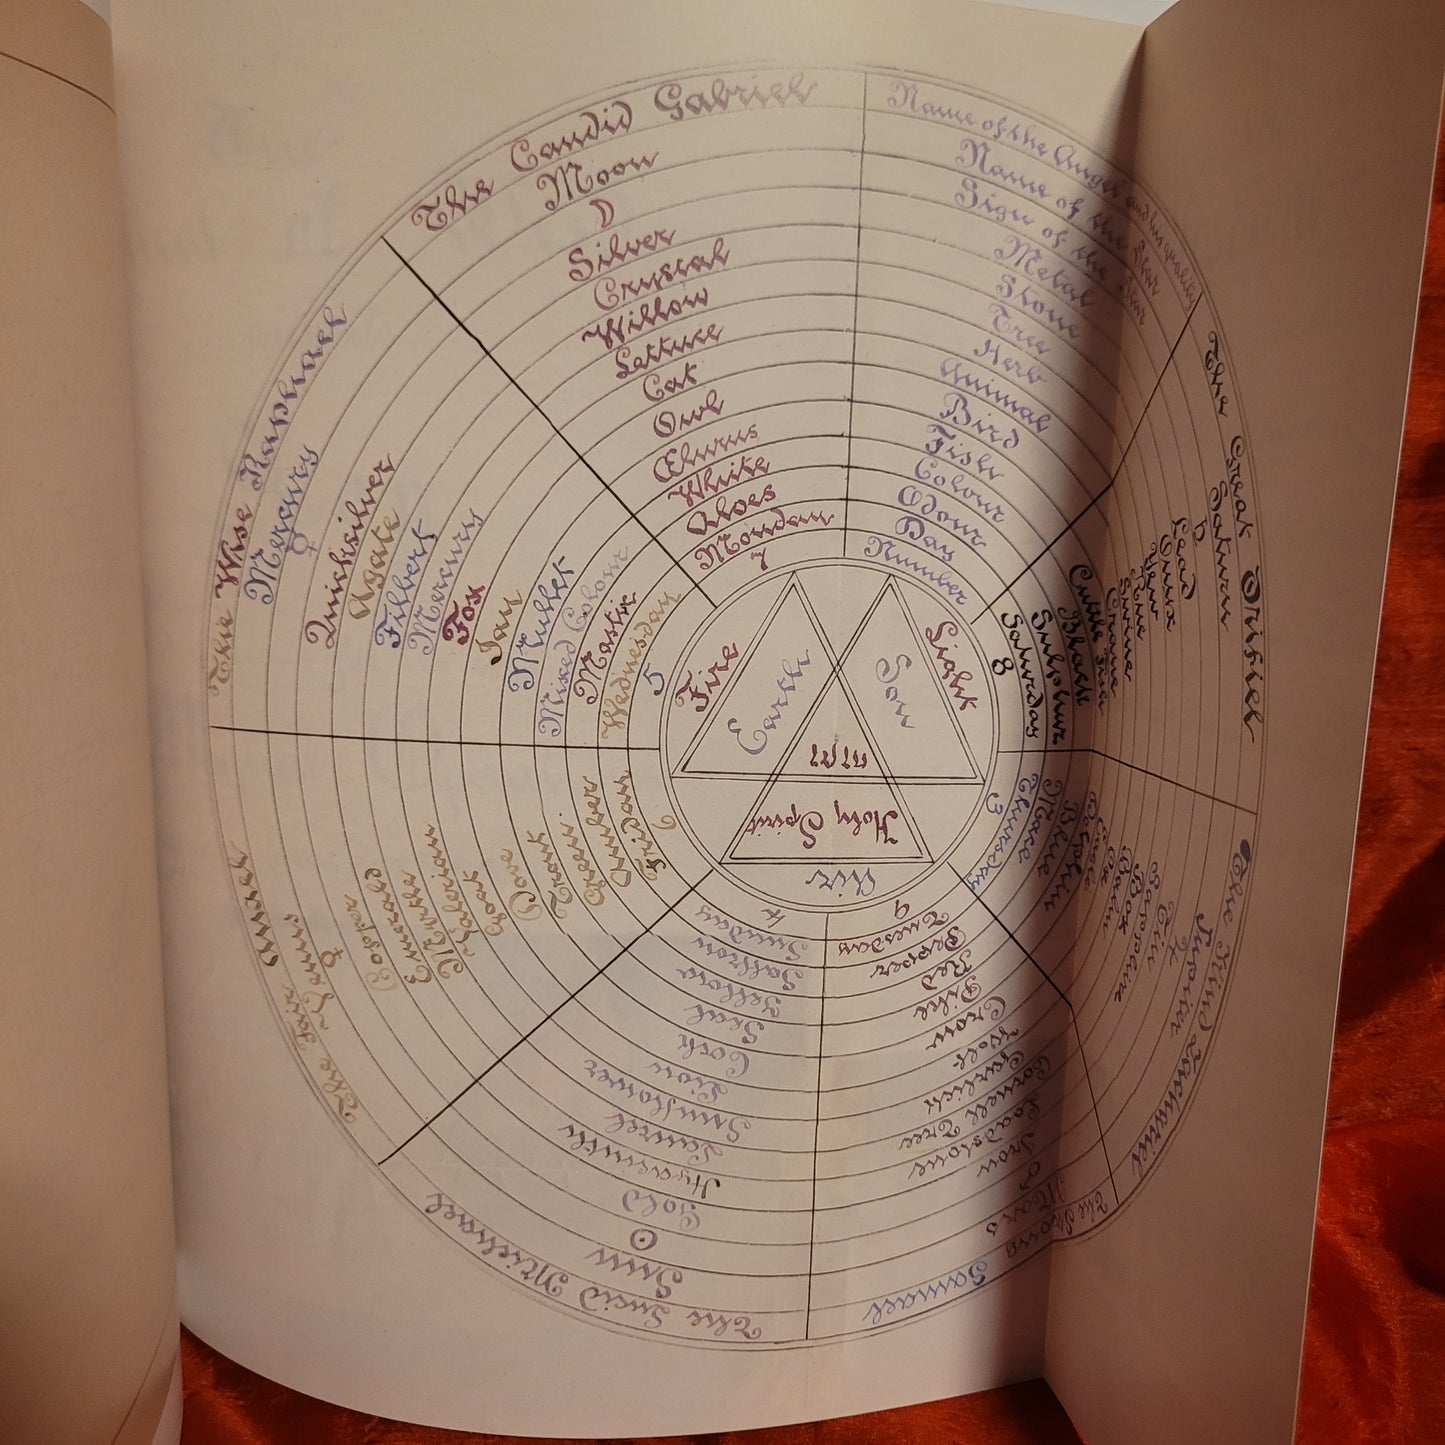 Name of the Angel and his quality
Name of the Star
Sign of the Star
Metal
Stone
Tree
Herb
Animal
Bird
Fish
Colour
Odour
Day
Number
The Great Orifiel
Saturn
♄
Lead
Onix
Yew
Pine
Swine
Crane
Cuttle Fish
Black
Sulphur
Saturday
8
The Kind Zachariel
Jupiter
♃
Tin
Sapphire
Box
Ox
Eagle
Dolphin
Blue
Mace
Thursday
3
The Strong Samael
Mars
♂
Iron
Loadstone
Cornell Tree
Garlick
Wolf
Crow
Pike
Red
Pepper
Tuesday
9
The Lucid Michael
Sun
☉
Gold
Hyacinth
Laurel
Sunflower
Lion
Cock
Seal
Yellow
Saffron
Sunday
4
The Fair Anael
♀
Cosper
Emerald
Myrtle
Goat
Dove
Green
Friday
The Wise Raphael
Mercury
☿
Quicksilver
Agate
Filbert
Mercury
Fox
Jay
Mullet
Mixed Colour
Mastix
Wednesday
5
The Candid Gabriel
Moon
☽
Silver
Crystal
Willow
Lettuce
Cat
Owl
Ælurus
White
Aloes
Monday
7
Fire
Light
Earth
Son
Holy Spirit
Air